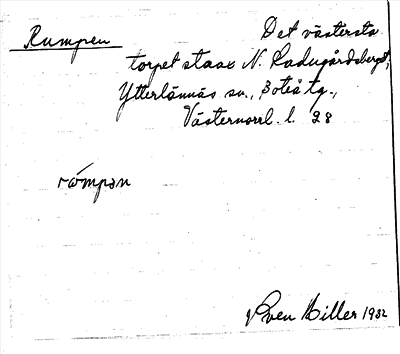 Rumpen
Det västersta
torpet strax N. Ladugårdsberget,
Ytterlännäs sn., Boteå tg.,
Västernorrl. l. 28
rώmpən
Sven Hiller 1932